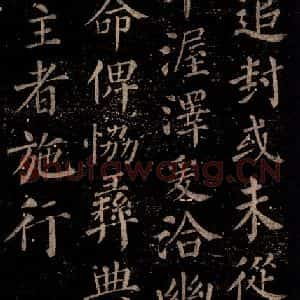 追封或未從
渥澤爰洽幽
命俾協彝典
主者施行
Shufawang.CN